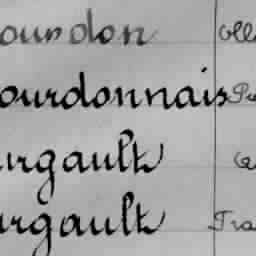 ourdon
ourdonnais
urgault
urgault Tra